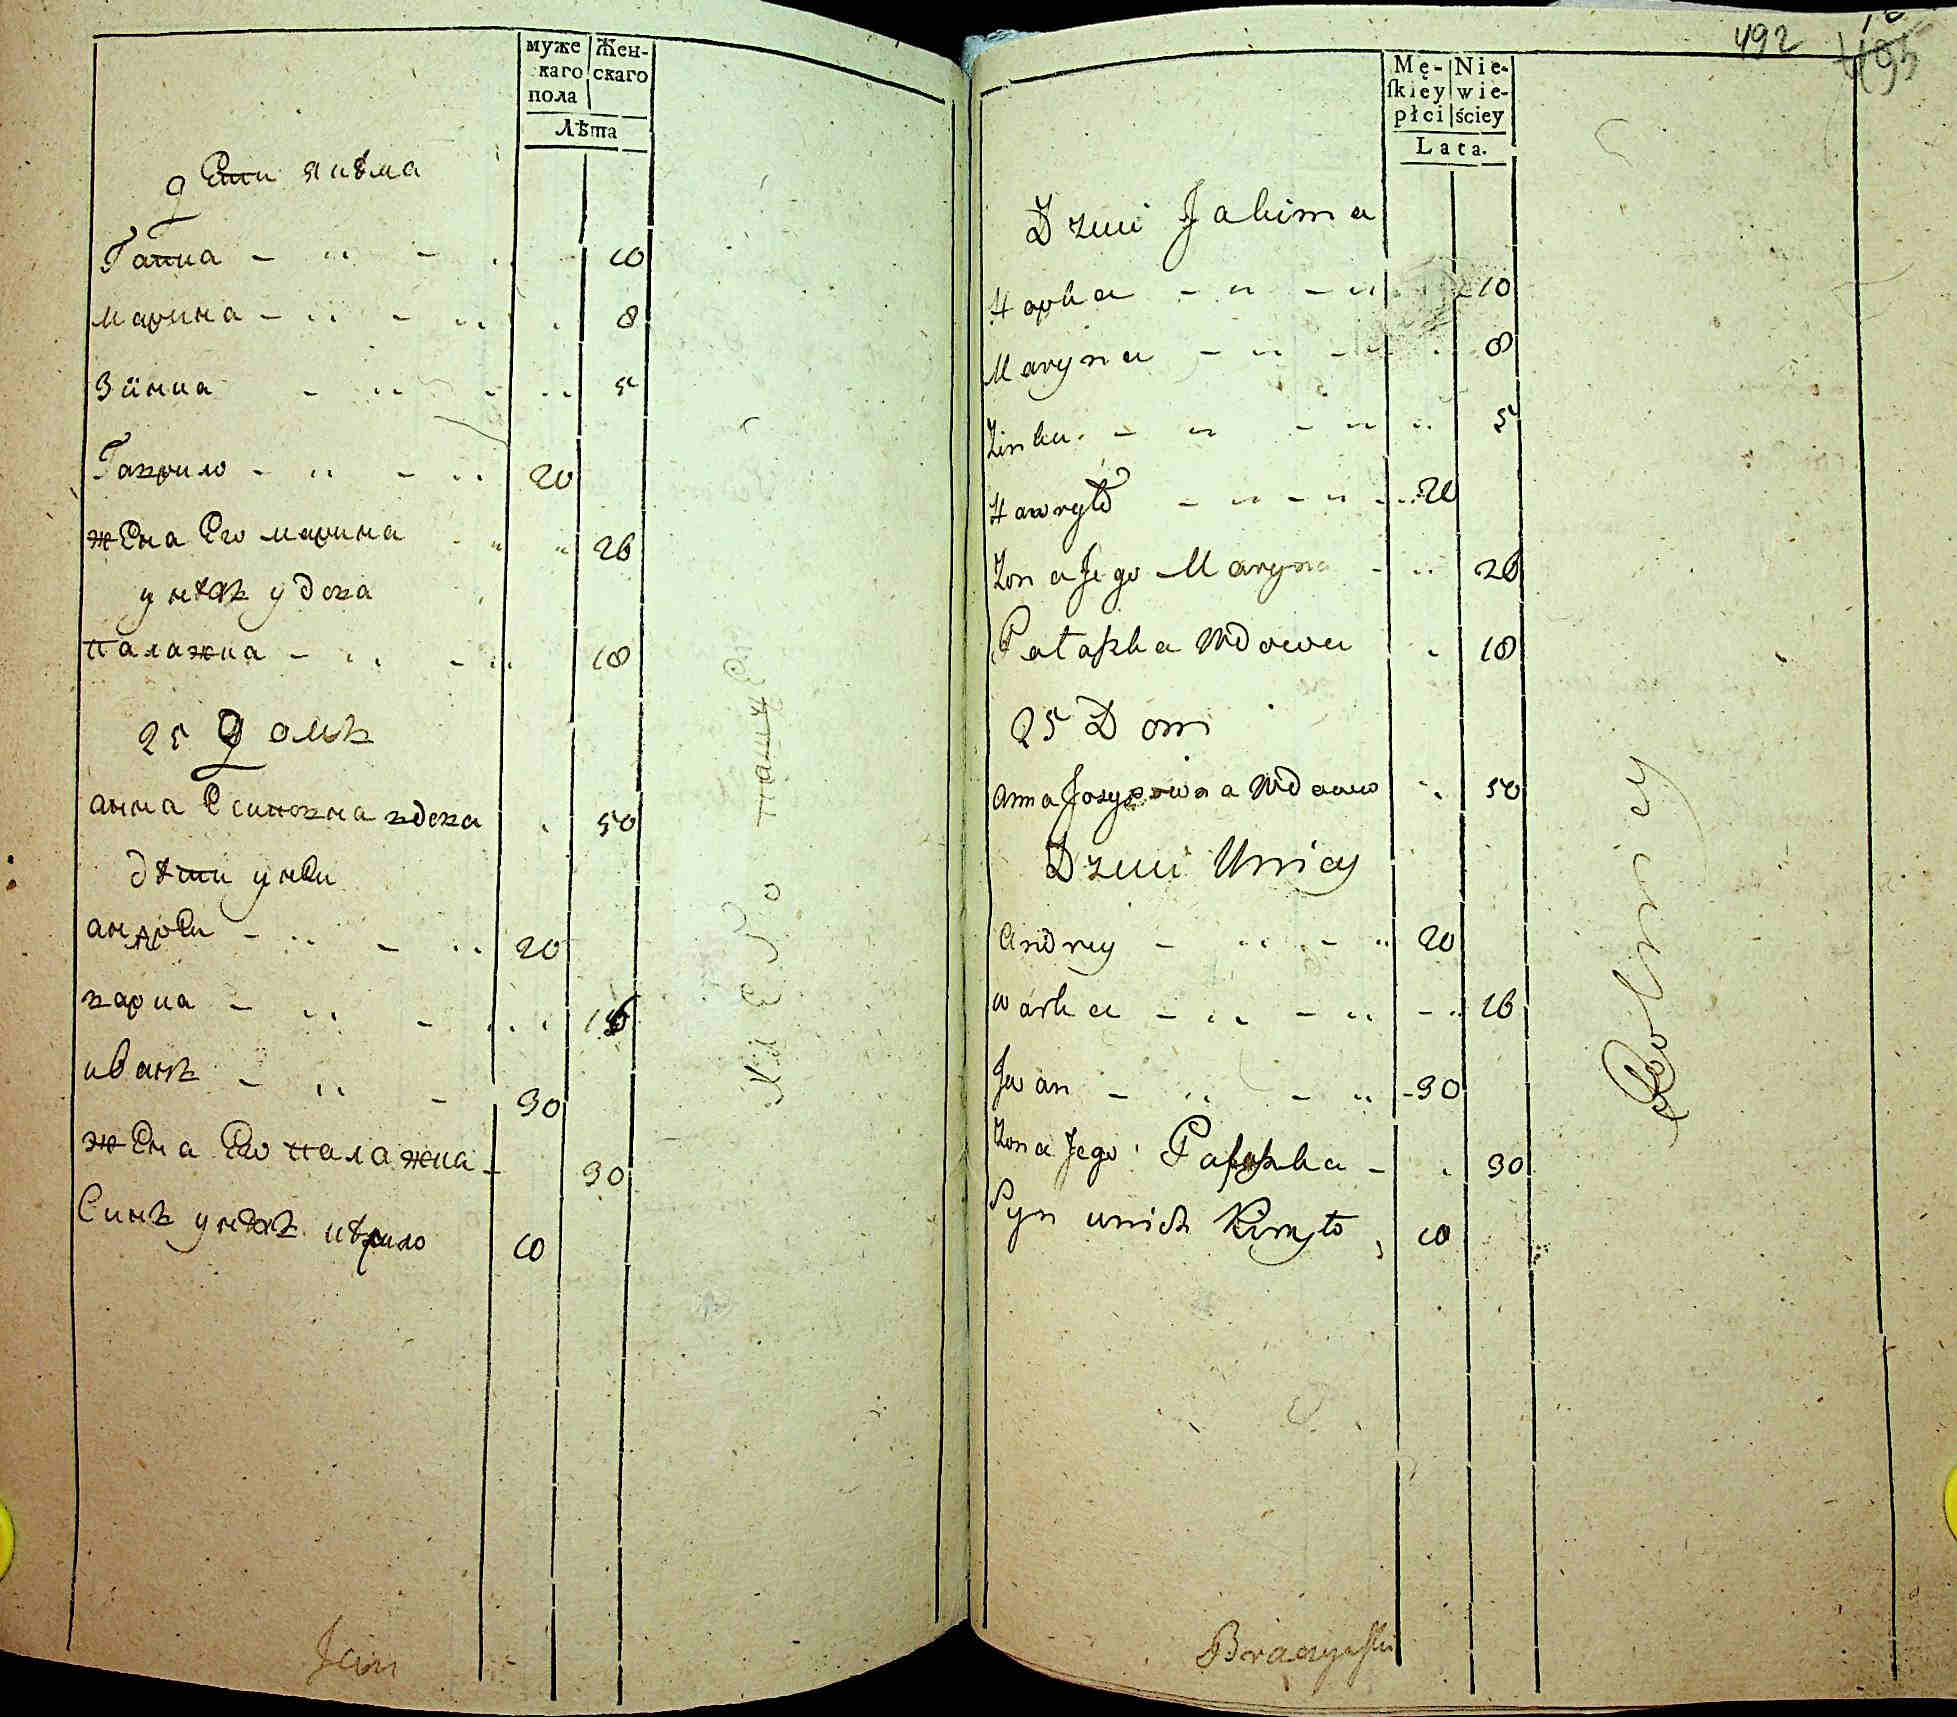 муже
каго
пола
Жен-
скаго
Лѣта
дети якѣма
Гапка 10
марина 8
Зѣнка 5
Гаврило 20
жена Его марина 26
у нѣхъ удова
палажка 18
25 домъ
анна Есиповна вдова 50
дѣти у неи
андреи 20
варка 16
иванъ 30
жена Его палажка 30
Синъ у нѣхъ кѣрило 10
Jan
492
495
Mę-
ſkiey
płci
Nie-
wie-
ściey
Lata.
Dzieci Jakima
Hapka 10
Maryna 8
Zinka 5
Hawryło 20
Zona Jego Maryna 26
Patażka Wdowa 18
25 Dom
Anna Josypowna Wdowa 50
Dzieci Uniey
Andrey 20
warka 16
Jwan 30
Zona Jego Patażka 30
Syn unich Kiryło 10
Rolnicy